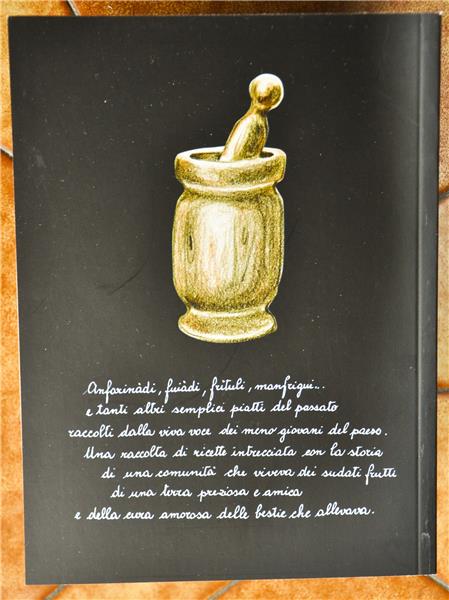 Anfarinàdi, fuiàdi, frituli, manfrigui...
e tanti altri semplici piatti del passato
raccolti dalla viva voce dei meno giovani del paese.
Una raccolta di ricette intrecciata con la storia
di una comunità che viveva dei sudati frutti
di una terra preziosa e amica
e della cura amorosa delle bestie che allevava.